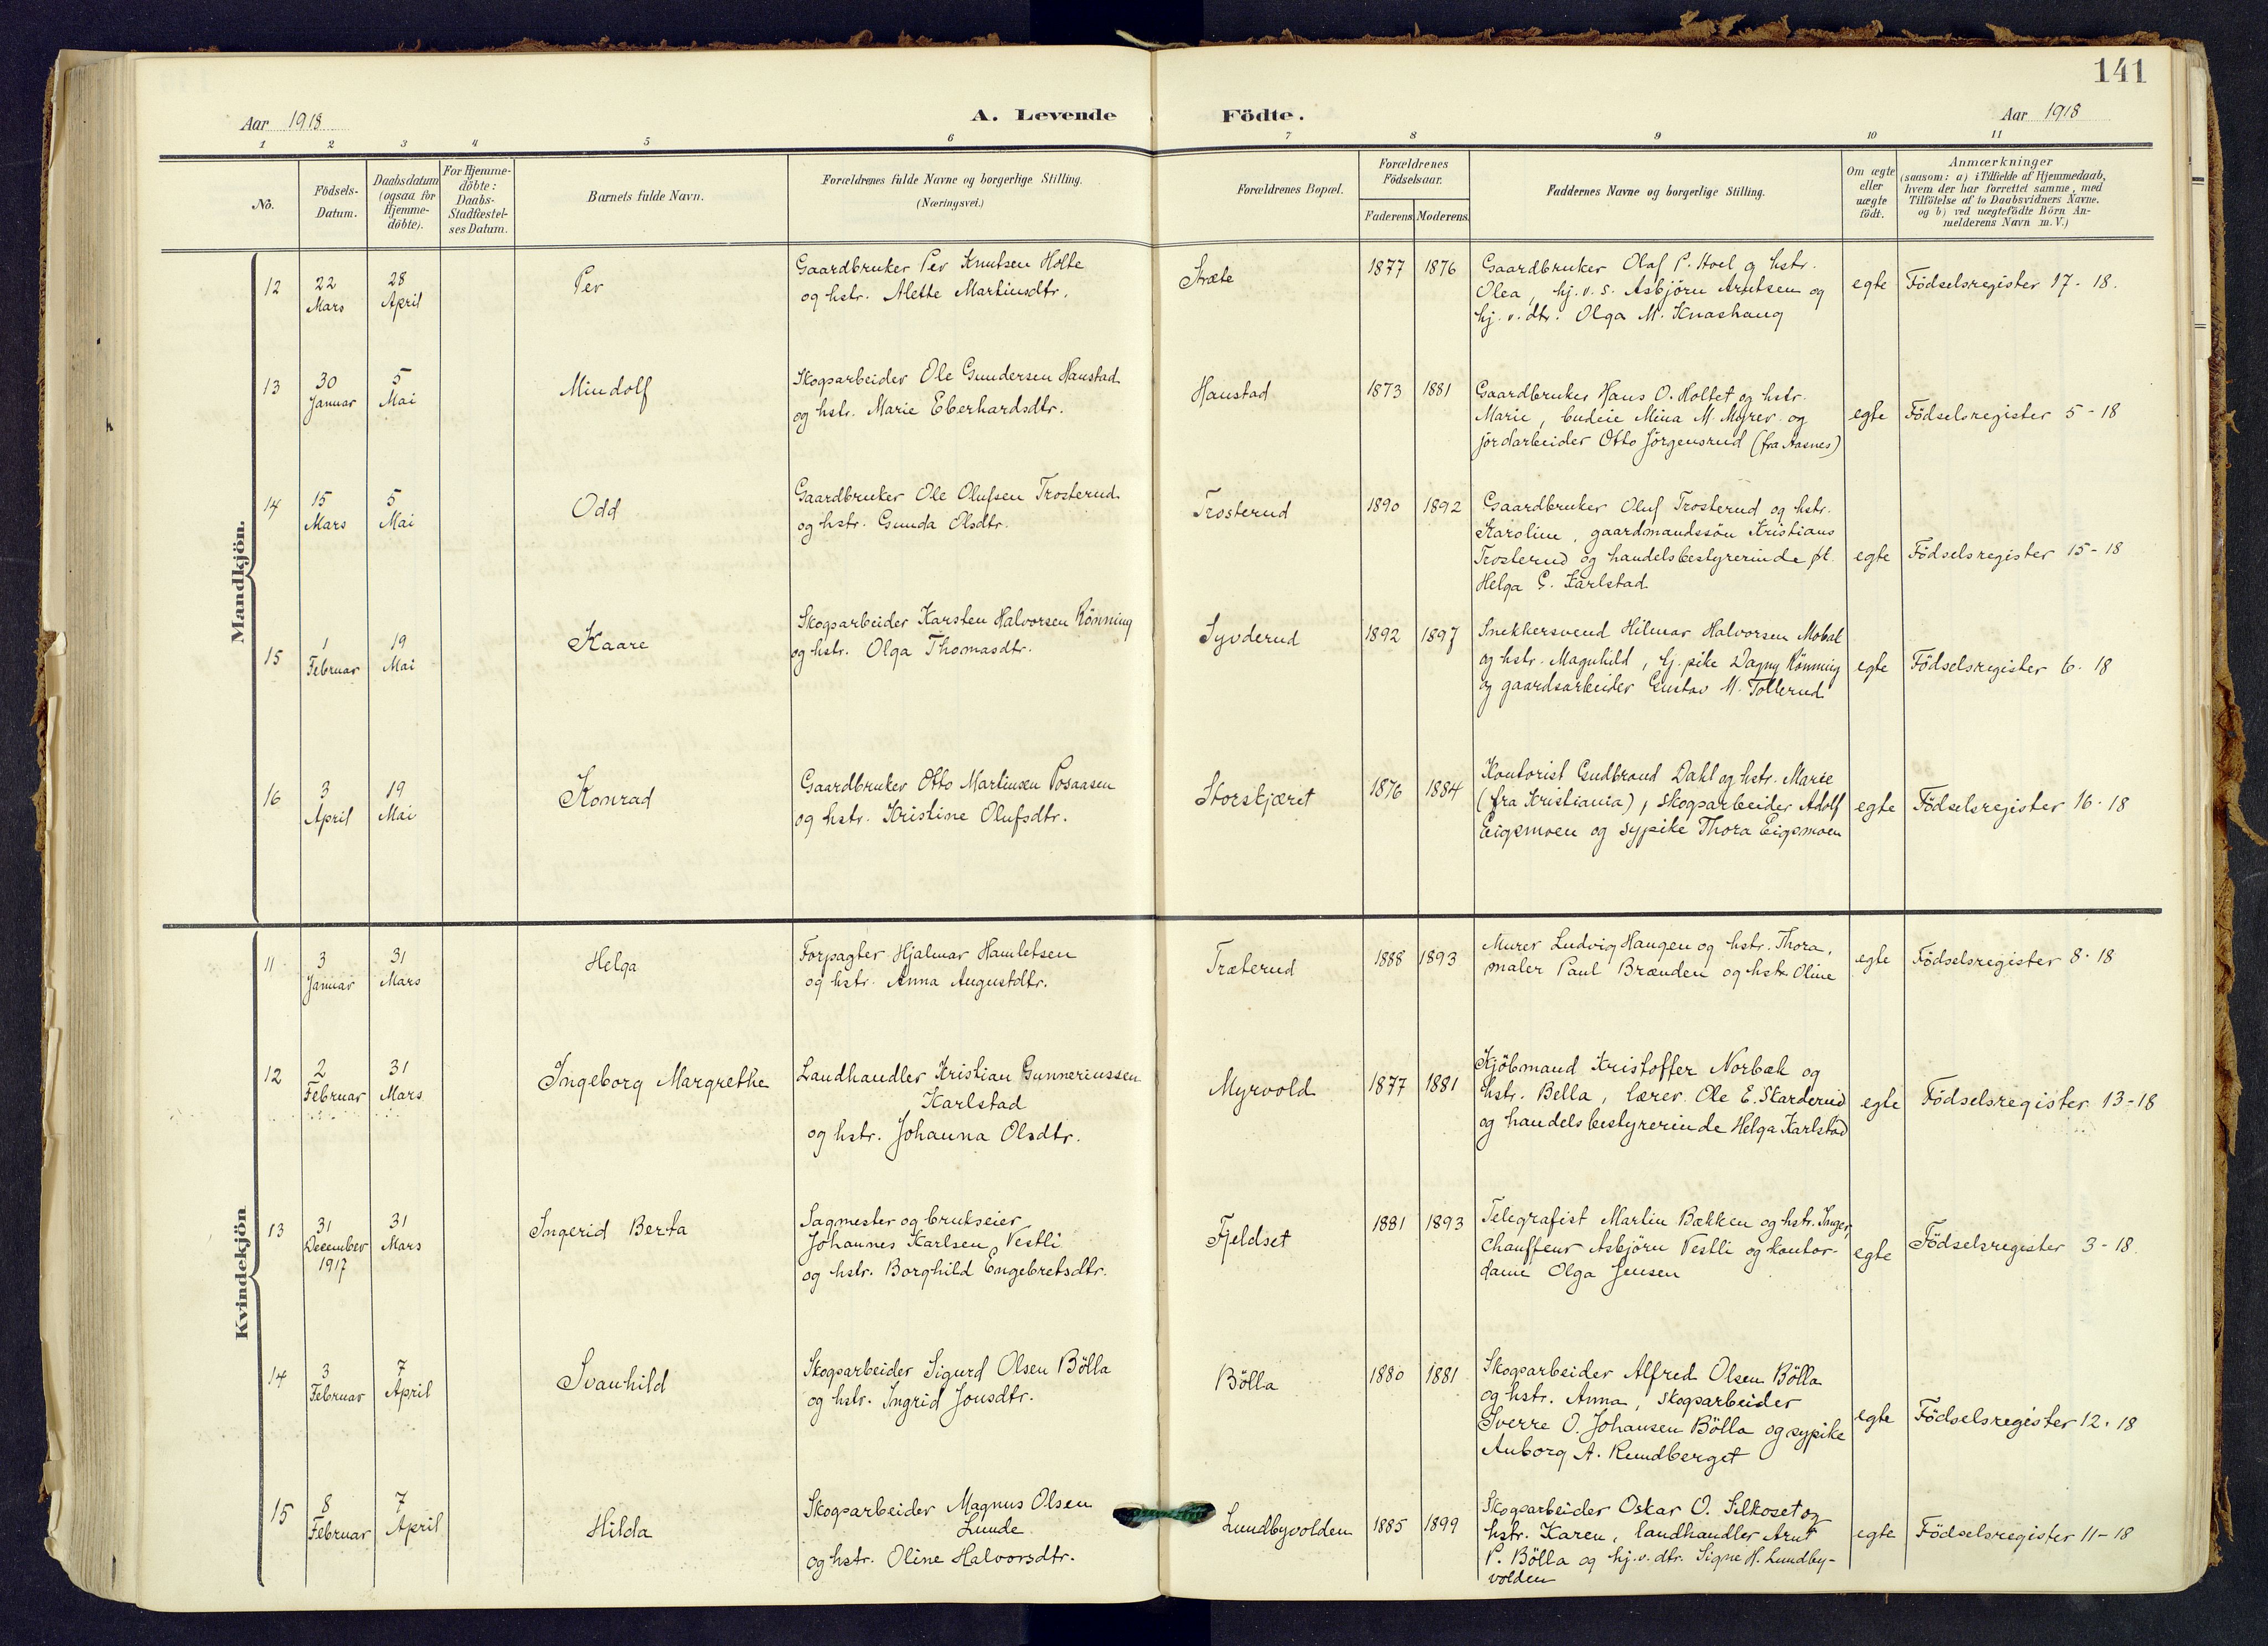 141
Aar 1918
A. Levende Födte.
Aar 1918
1 2 3 4 5 6 7 8 9 10 11
No.
Födsels-
Datum.
Daabsdatum
(ogsaa for
Hjemme-
döbte).
For Hjemme-
döbte:
Daabs-
Stadfæstel-
ses Datum.
Barnets fulde Navn.
Forældrenes fulde Navne og borgerlige Stilling.
(Næringsvei.)
Forældrenes Bopæl.
Forældrenes
Födselsaar.
Faderens. Moderens.
Faddernes Navne og borgerlige Stilling.
Om ægte
eller
uægte
födt.
Anmærkninger
(saasom: a) i Tilfælde af Hjemmedaab,
hvem der har forrettet samme, med
Tilföielse af to Daabsvidners Navne,
og b) ved uægtefödte Börn An-
melderens Navn m.V.)
Mandkjön.
12
22
Mars
28
April
Per
Gaardbruker Per Knutsen Holte
og hstr. Alette Martinsdtr.
Stræte
1877 1876
Gaardbruker Olaf P. Hoel og hstr.
Olea, hj.v.s. Asbjörn Arntsen og
hj.v.dtr. Olga M. Knashaug
egte
Födselsregister 17-18.
13
30
Januar
5
Mai
Mindolf
Skogsarbeider Ole Gundersen Haustad
og hstr. Marie Eberhardsdtr.
Haustad
1873 1881
Gaardbruker Hans O. Holtet og hstr.
Marie, budeie Mina M. Myrer og
jordarbeider Otto Jörgensrud (fra Aasnes)
egte
Födselsregister 5-18
14
15
Mars
5
Mai
Odd
Gaardbruker Ole Olufsen Trosterud
og hstr. Gunda Olsdtr.
Trosterud
1890 1892
Gaardbruker Oluf Trosterud og hstr.
Karoline, gaardmandssön Kristians
Trosterud og handelsbestyrerinde
Helga G. Karlstad
egte
Födselsregister 15-18
15
1
Februar
19
Mai
Kaare
Skogsarbeider Karsten Halvorsen Rönning
og hstr. Olga Thomasdtr.
Syvderud
1892 1897
Snekkersvend Hilmar Halvorsen Mobæk
og hstr. Magnhild, hj. pike Dagny Rönning
og gaardsarbeider Gustav M. Tollerud
egte
Födselsregister 6-18
16
3
April
19
Mai
Konrad
Gaardbruker Otto Martinsen Posaasen
og hstr. Kristine Olufsdtr.
Storskjæret
1876 1884
Kontorist Gudbrand Dahl og hstr. Marie
(fra Kristiania), skogsarbeider Adolf
Eigsmoen og sypike Thora Eigsmoen
egte
Födselsregister 16-18
Kvindekjön
11
3
Januar
31
Mars
Helga
Forpagter Hjalmar Hamletsen
og hstr. Anna Augustdtr.
Træterud
1888 1893
Murer Ludvig Haugen og hstr. Thora,
maler Paul Brænden og hstr. Oline
egte
Födselsregister 8-18
12
2
Februar
31
Mars
Ingeborg Margrethe
Landhandler Kristian Gunneriussen
Karlstad
og hstr. Johanna Olsdtr.
Myrvold
1877 1881
Kjöbmand Kristoffer Norbæk og
hstr. Bella, lærer Ole E. Skarderud
og handelsbestyrerinde Helga Karlstad
egte
Födselsregister 13-18
13
31
December
1917
31
Mars
Ingerid Berta
Sagmester og brukseier
Johannes Karlsen Vestli
og hstr. Borghild Engebretsdtr.
Fjeldset
1881 1893
Telegrafist Martin Bækken og hstr. Inger,
Chauffeur Asbjörn Vestli og kontor-
dame Olga Jensen
egte
Födselsregister 3-18.
14
3
Februar
7
April
Svanhild
Skogsarbeider Sigurd Olsen Bölla
og hstr. Ingrid Jonsdtr.
Bölla
1880 1881
Skogsarbeider Alfred Olsen Bölla
og hstr. Anna, skogsarbeider
Sverre O. Johansen Bölla og sypike
Anborg A. Rundberget
egte
Födselsregister 12-18
15
8
Februar
7
April
Hilda
Skogsarbeider Magnus Olsen
Lunde
og hstr. Oline Halvorsdtr.
Lundbyvolden
1885 1899
Skogsarbeider Oskar O. Silkoset og
hstr. Karen, landhandler Arnt
P. Bölla og hj.v.dtr. Signe H. Lundby-
volden
egte
Födselsregister 11-18